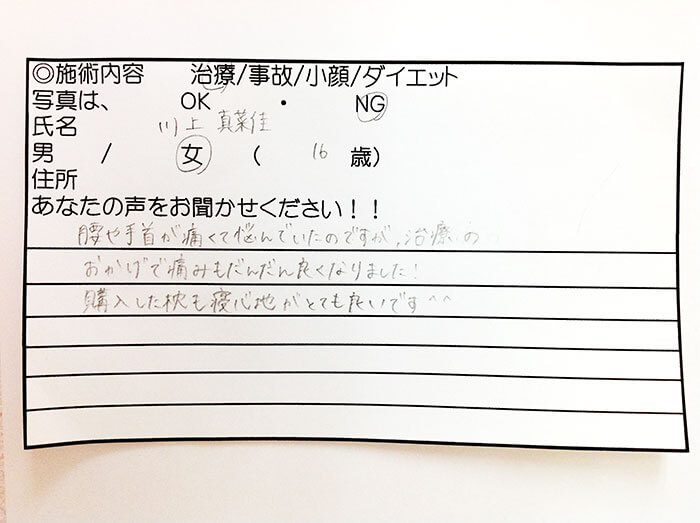 ◎施術内容 治療/事故/小顔/ダイエット
写真は、 OK ・ NG
氏名 川上 真菜佳
男 / 女 ( 16 歳)
住所
あなたの声をお聞かせください！！
腰や手首が痛くて悩んでいたのですが、治療の
おかげで痛みもだんだん良くなりました！
購入した枕も寝心地がとても良いです^^